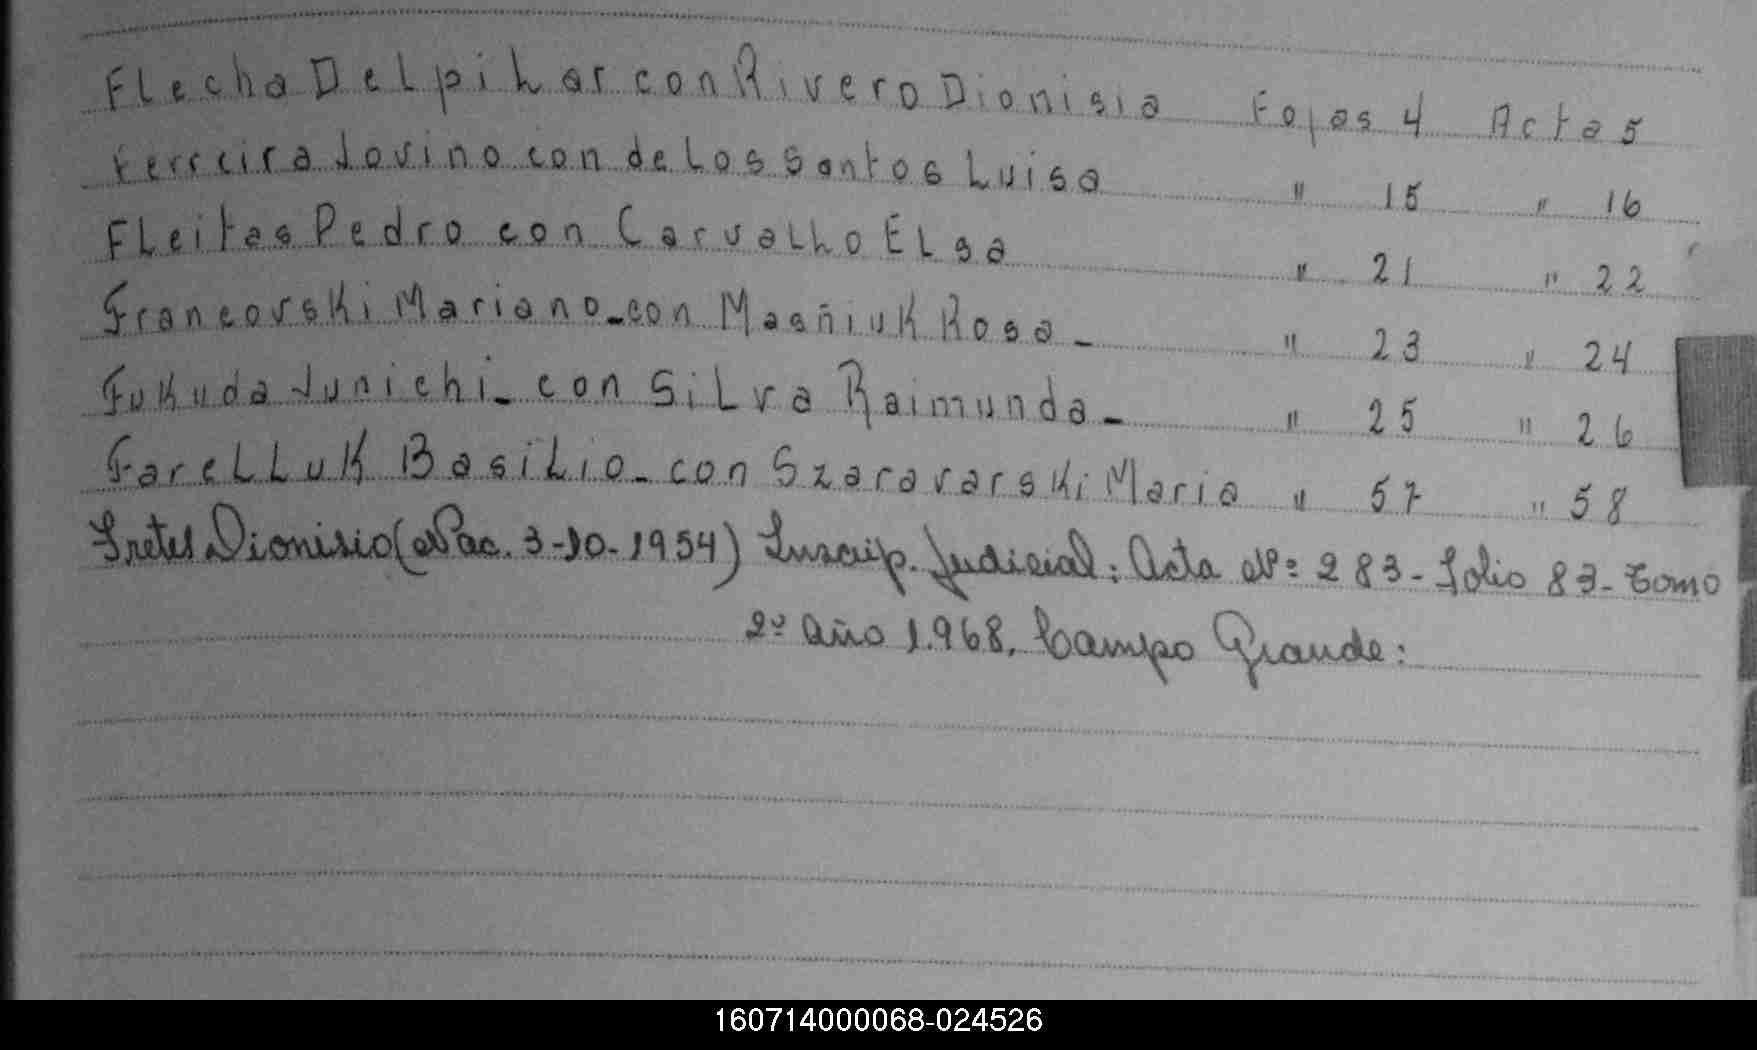 Flecha Delpilar con Rivero Dionisia Fojas 4 Acta 5
Ferreira Jovino con de Los Santos Luisa " 15 " 16
Fleitas Pedro con Carvalho Elsa " 21 " 22
Francovski Mariano - con Masñiuk Rosa - " 23 " 24
Fukuda Junichi - con Silva Raimunda - " 25 " 26
Farelluk Basilio - con Szaravarski Maria " 57 " 58
Fretes Dionisio (Nac. 3-10-1954) Inscrip. Judicial: Acta Nº: 283 - Folio 83 - Tomo
2º Año 1.968. Campo Grande:
160714000068-024526